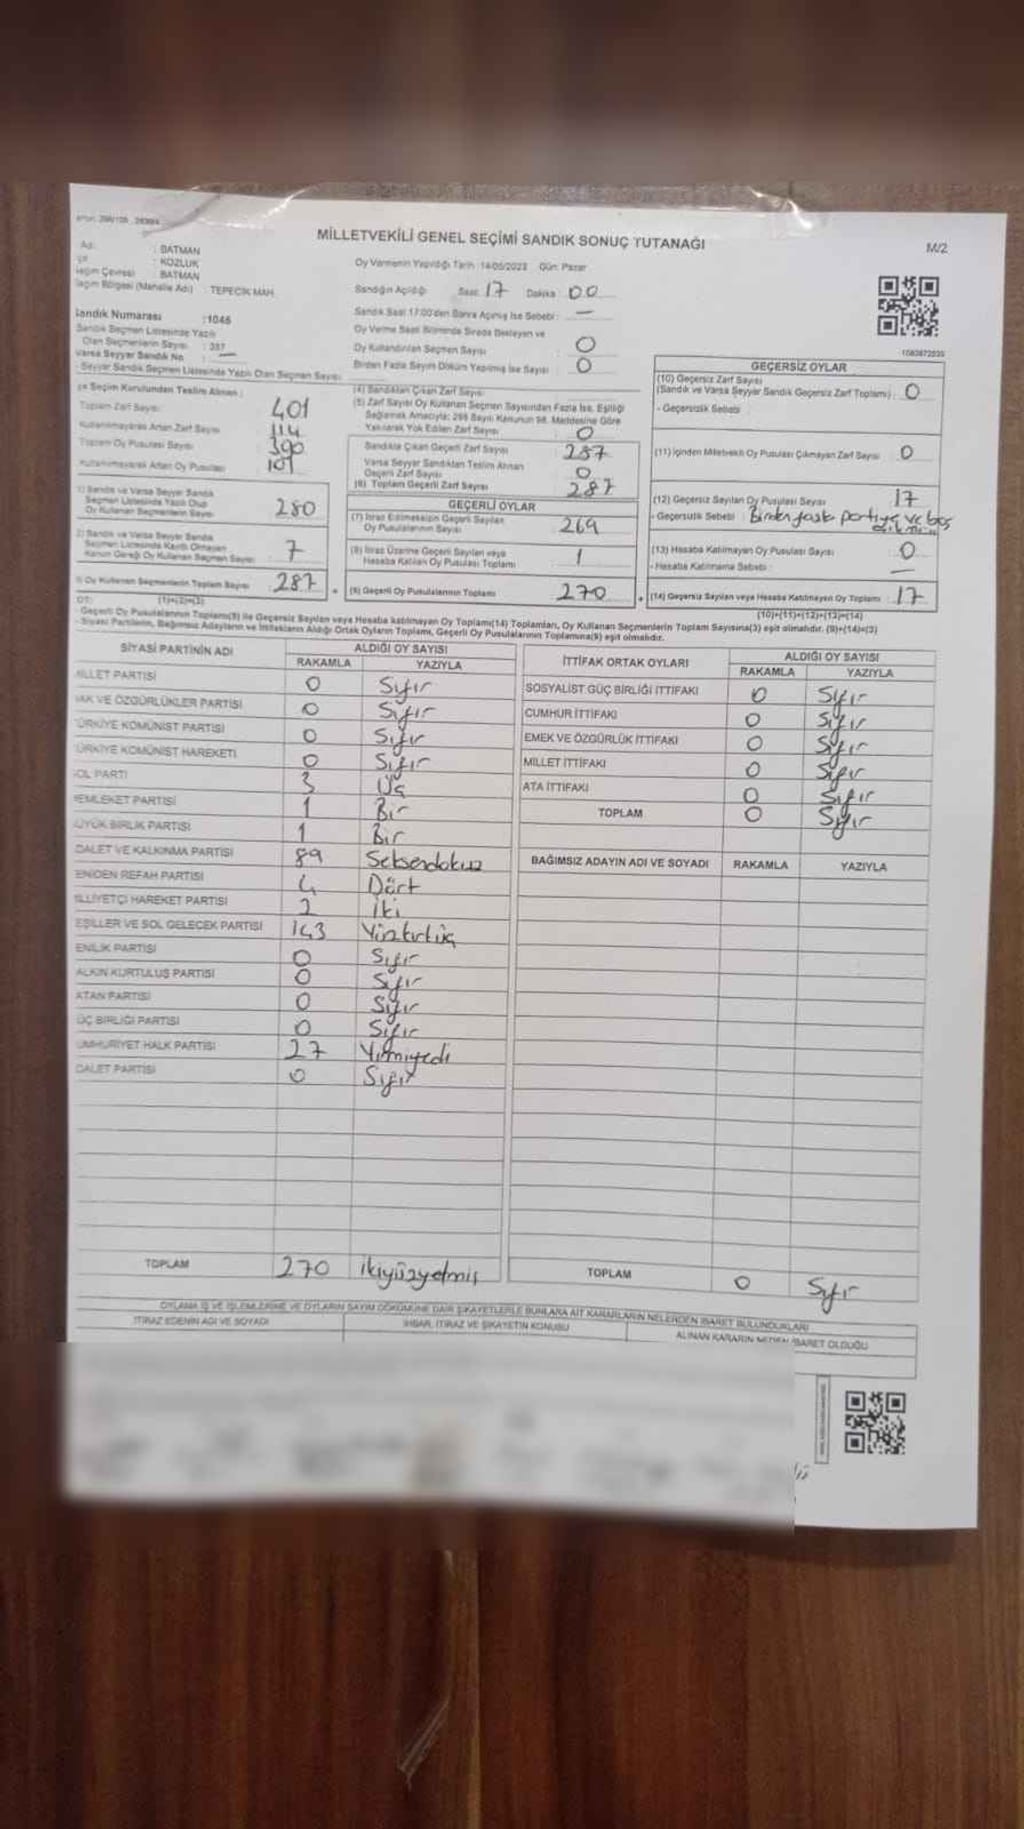 MİLLETVEKİLİ GENEL SEÇİMİ SANDIK SONUÇ TUTANAĞI
M/2
: BATMAN
: KOZLUK
Seçim Çevresi : BATMAN
(Mahalle Adı) : TEPECİK MAH.
Sandık Numarası : 1046
Sandık Seçmen Listesinde Yazılı
Olan Seçmenlerin Sayısı : 387
Varsa Seyyar Sandık No : —
Seyyar Sandık Seçmen Listesinde Yazılı Olan Seçmen Sayısı:
Oy Vermenin Yapıldığı Tarih : 14/05/2023 Gün: Pazar
Sandığın Açıldığı Saat: 17 Dakika : 00
Sandık Saat 17:00'den Sonra Açılmış İse Sebebi : —
Oy Verme Saati Bitiminde Sırada Bekleyen ve
Oy Kullandırılan Seçmen Sayısı : 0
Birden Fazla Seçim Döküm Yapılmış İse Sayısı : 0
Seçim Kurulundan Teslim Alınan :
Toplam Zarf Sayısı : 401
Kullanılmayarak Artan Zarf Sayısı : 114
Toplam Oy Pusulası Sayısı : 390
Kullanılmayarak Artan Oy Pusulası : 101
1) Sandık ve Varsa Seyyar Sandık
Seçmen Listesinde Yazılı Olup
Oy Kullanan Seçmenlerin Sayısı : 280
2) Sandık ve Varsa Seyyar Sandık
Seçmen Listesinde Kayıtlı Olmayan
Kanun Gereği Oy Kullanan Seçmen Sayısı : 7
Oy Kullanan Seçmenlerin Toplam Sayısı : 287
(1)+(2)=(3)
(4) Sandıktan Çıkan Zarf Sayısı :
(5) Zarf Sayısı Oy Kullanan Seçmen Sayısından Fazla İse, Eşitliği
Sağlamak Amacıyla; 298 Sayılı Kanunun 98. Maddesine Göre
Yakılarak Yok Edilen Zarf Sayısı : 0
Sandıkta Çıkan Geçerli Zarf Sayısı : 287
Varsa Seyyar Sandıktan Teslim Alınan
Geçerli Zarf Sayısı : 0
(6) Toplam Geçerli Zarf Sayısı : 287
GEÇERLİ OYLAR
(7) İtiraz Edilmeksizin Geçerli Sayılan
Oy Pusulalarının Sayısı : 269
(8) İtiraz Üzerine Geçerli Sayılan veya
Hesaba Katılan Oy Pusulası Toplamı : 1
(9) Geçerli Oy Pusulalarının Toplamı : 270
1083872035
GEÇERSİZ OYLAR
(10) Geçersiz Zarf Sayısı
(Sandık ve Varsa Seyyar Sandık Geçersiz Zarf Toplamı) : 0
- Geçersizlik Sebebi :
(11) İçinden Milletvekili Oy Pusulası Çıkmayan Zarf Sayısı : 0
(12) Geçersiz Sayılan Oy Pusulası Sayısı : 17
- Geçersizlik Sebebi : Birden fazla partiye ve boş
(13) Hesaba Katılmayan Oy Pusulası Sayısı : 0
- Hesaba Katılmama Sebebi : —
(14) Geçersiz Sayılan veya Hesaba Katılmayan Oy Toplamı : 17
(10)+(11)+(12)+(13)=(14)
- Geçerli Oy Pusulalarının Toplamı(9) ile Geçersiz Sayılan veya Hesaba katılmayan Oy Toplamı(14) Toplamları, Oy Kullanan Seçmenlerin Toplam Sayısına(3) eşit olmalıdır. (9)+(14)=(3)
- Siyasi Partilerin, Bağımsız Adayların ve İttifakların Aldığı Ortak Oyların Toplamı, Geçerli Oy Pusulalarının Toplamına(9) eşit olmalıdır.
SİYASİ PARTİNİN ADI ALDIĞI OY SAYISI
RAKAMLA YAZIYLA
İLLET PARTİSİ 0 Sıfır
AK VE ÖZGÜRLÜKLER PARTİSİ 0 Sıfır
ÜRKİYE KOMÜNİST PARTİSİ 0 Sıfır
ÜRKİYE KOMÜNİST HAREKETİ 0 Sıfır
OL PARTİ 3 Üç
EMLEKET PARTİSİ 1 Bir
ÜYÜK BİRLİK PARTİSİ 1 Bir
DALET VE KALKINMA PARTİSİ 89 Seksendokuz
ENİDEN REFAH PARTİSİ 4 Dört
İLLİYETÇİ HAREKET PARTİSİ 2 İki
EŞİLLER VE SOL GELECEK PARTİSİ 143 Yüzkırküç
ENİLİK PARTİSİ 0 Sıfır
ALKIN KURTULUŞ PARTİSİ 0 Sıfır
ATAN PARTİSİ 0 Sıfır
ÜÇ BİRLİĞİ PARTİSİ 0 Sıfır
UMHURİYET HALK PARTİSİ 27 Yirmiyedi
DALET PARTİSİ 0 Sıfır
TOPLAM 270 ikiyüzyetmiş
İTTİFAK ORTAK OYLARI ALDIĞI OY SAYISI
RAKAMLA YAZIYLA
SOSYALİST GÜÇ BİRLİĞİ İTTİFAKI 0 Sıfır
CUMHUR İTTİFAKI 0 Sıfır
EMEK VE ÖZGÜRLÜK İTTİFAKI 0 Sıfır
MİLLET İTTİFAKI 0 Sıfır
ATA İTTİFAKI 0 Sıfır
TOPLAM 0 Sıfır
BAĞIMSIZ ADAYIN ADI VE SOYADI RAKAMLA YAZIYLA
TOPLAM 0 Sıfır
OYLAMA İŞ VE İŞLEMLERİNE VE OYLARIN SAYIM DÖKÜMÜNE DAİR ŞİKAYETLERLE BUNLARA AİT KARARLARIN NELERDEN İBARET BULUNDUKLARI
İTİRAZ EDENİN ADI VE SOYADI İHBAR, İTİRAZ VE ŞİKAYETİN KONUSU ALINAN KARARIN NEDEN İBARET OLDUĞU